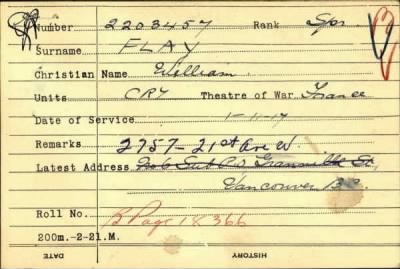 Number 2203457 Rank Spr.
Surname FLAY
Christian Name William.
Units CRT Theatre of War. France
Date of Service 1-11-17
Remarks 2757-21st Ave W.
Latest Address No 6 Sub P.O Granville St,
Vancouver B.C.
Roll No. B Page 18366
200m.-2-21.M.
DATE HISTORY